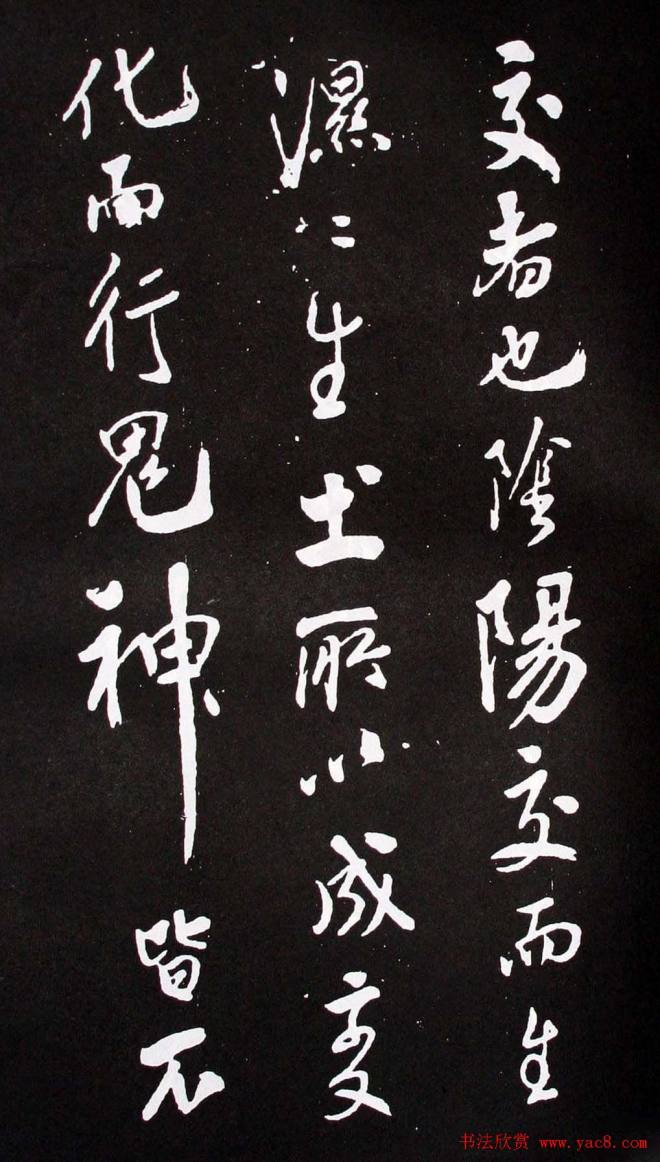 交者也陰陽交而生
濕〻生土所以成变
化而行鬼神皆不
书法欣赏 www.yac8.com